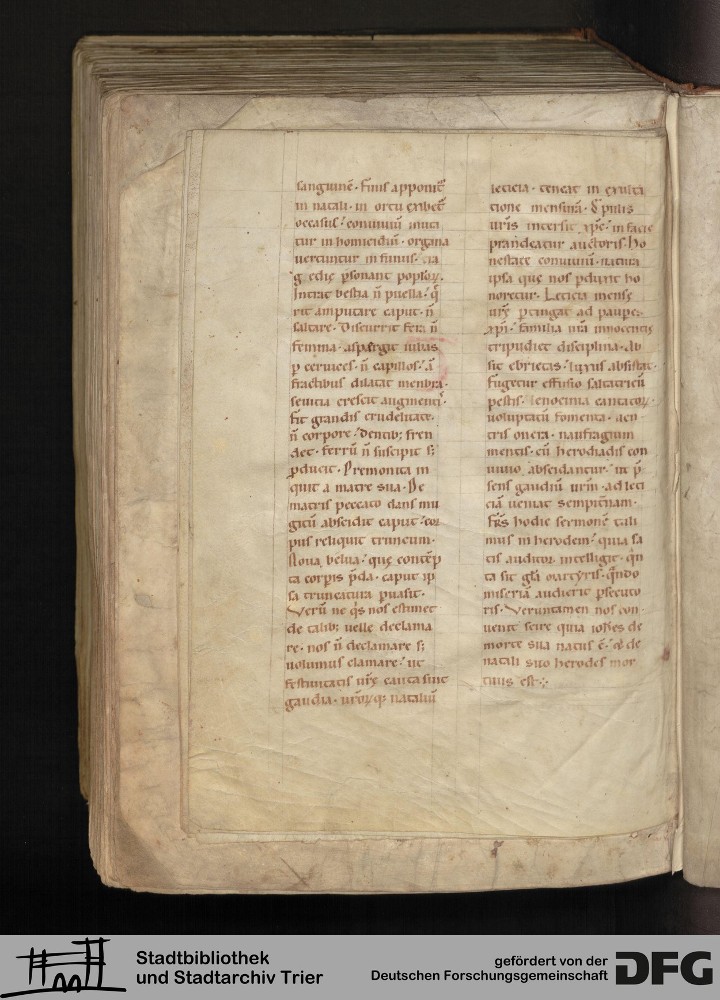 sanguinē · Finis apponit᷑
in natali · in ortu exibet᷑
occasus : conuiuiū muta
tur in homicidiū · organa
uertuntur in funus ·
gedię ꝑsonant poploꝝ ·
Intrat bestia n̄ puella : q̄
rit amputare caput · n̄
saltare · Discurrit fera n̄
femina · aspargit iubas
ꝑ ceruices · n̄ capillos :
fractibus dilatat menbra ·
seuicia crescit augmentis ·
fit grandis crudelitate ·
n̄ corpore : dentib; fren
det · ferrū n̄ suscipit s;
ꝓducit · Premonita in
quit a matre sua · De
matris peccato dans mu
gitū abscidit caput : cor
pus reliquit truncum ·
Noua belua : que contēp
ta corꝑis p̄da · caput ip
sa truncatura ꝑuasit ·
Verū ne q̄s nos estimet
de talib; uelle declama
re · nos n̄ declamare s;
uolumus clamare : ut
festiuitatis ur̄ę cauta sint
gaudia · ur̄oꝝq; nataliū
leticia · teneat in exulta
cione mensurā ·
ur̄is intersit xp̄c : in facie
prandeatur auctoris · Ho
nestate conuiuiū · natura
ipsa que nos ꝓdurit ho
noretur · Leticia mensę
ur̄ę ꝑtingat ad paupeꝝ
xp̄i · familia ur̄a innocentię
tripudiet disciplina · Ab
sit ebrietas · luxus absistat ·
fugetur effusio saltatriciū
pestis · lenocinia cantatoꝝ ·
uoluptatū fomenta · uen
tris onera · naufragium
mentis · cū herodiadis con
uiuio abscidantur : ut p̄
sens gaudiū ur̄m · ad leti
ciā ueniat sempitnam ·
Fr̄s hodie sermonē tuli
mus in herodem : quia sa
tis auditor intelligit · q̄n
ta sit gl̄a martyris · q̄ndo
miseriā audierit ꝑsecuto
ris · Veruntamen nos con
uenit scire quia ioh̄es de
morte sua natus ē · & de
natali suo herodes mor
tuus est ·
Stadtbibliothek
und Stadtarchiv Trier
gefördert von der
Deutschen Forschungsgemeinschaft
DFG